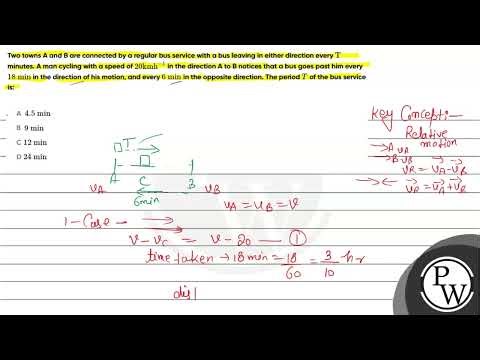 Two towns A and B are connected by a regular bus service with a bus leaving in either direction every T
minutes. A man cycling with a speed of 20kmh⁻¹ in the direction A to B notices that a bus goes past him every
18 min in the direction of his motion, and every 6 min in the opposite direction. The period T of the bus service
is:
A 4.5 min
B 9 min
C 12 min
D 24 min
Key Concept:-
Relative
motion
A vA
B vB
vR = vA - vB
vR = vA + vB
T
A C B
vA 6min vB
vA = vB = v
1-Case -
v - vc = v - 20 — ①
time taken → 18 min = 18/60 = 3/10 hr
dis
PW